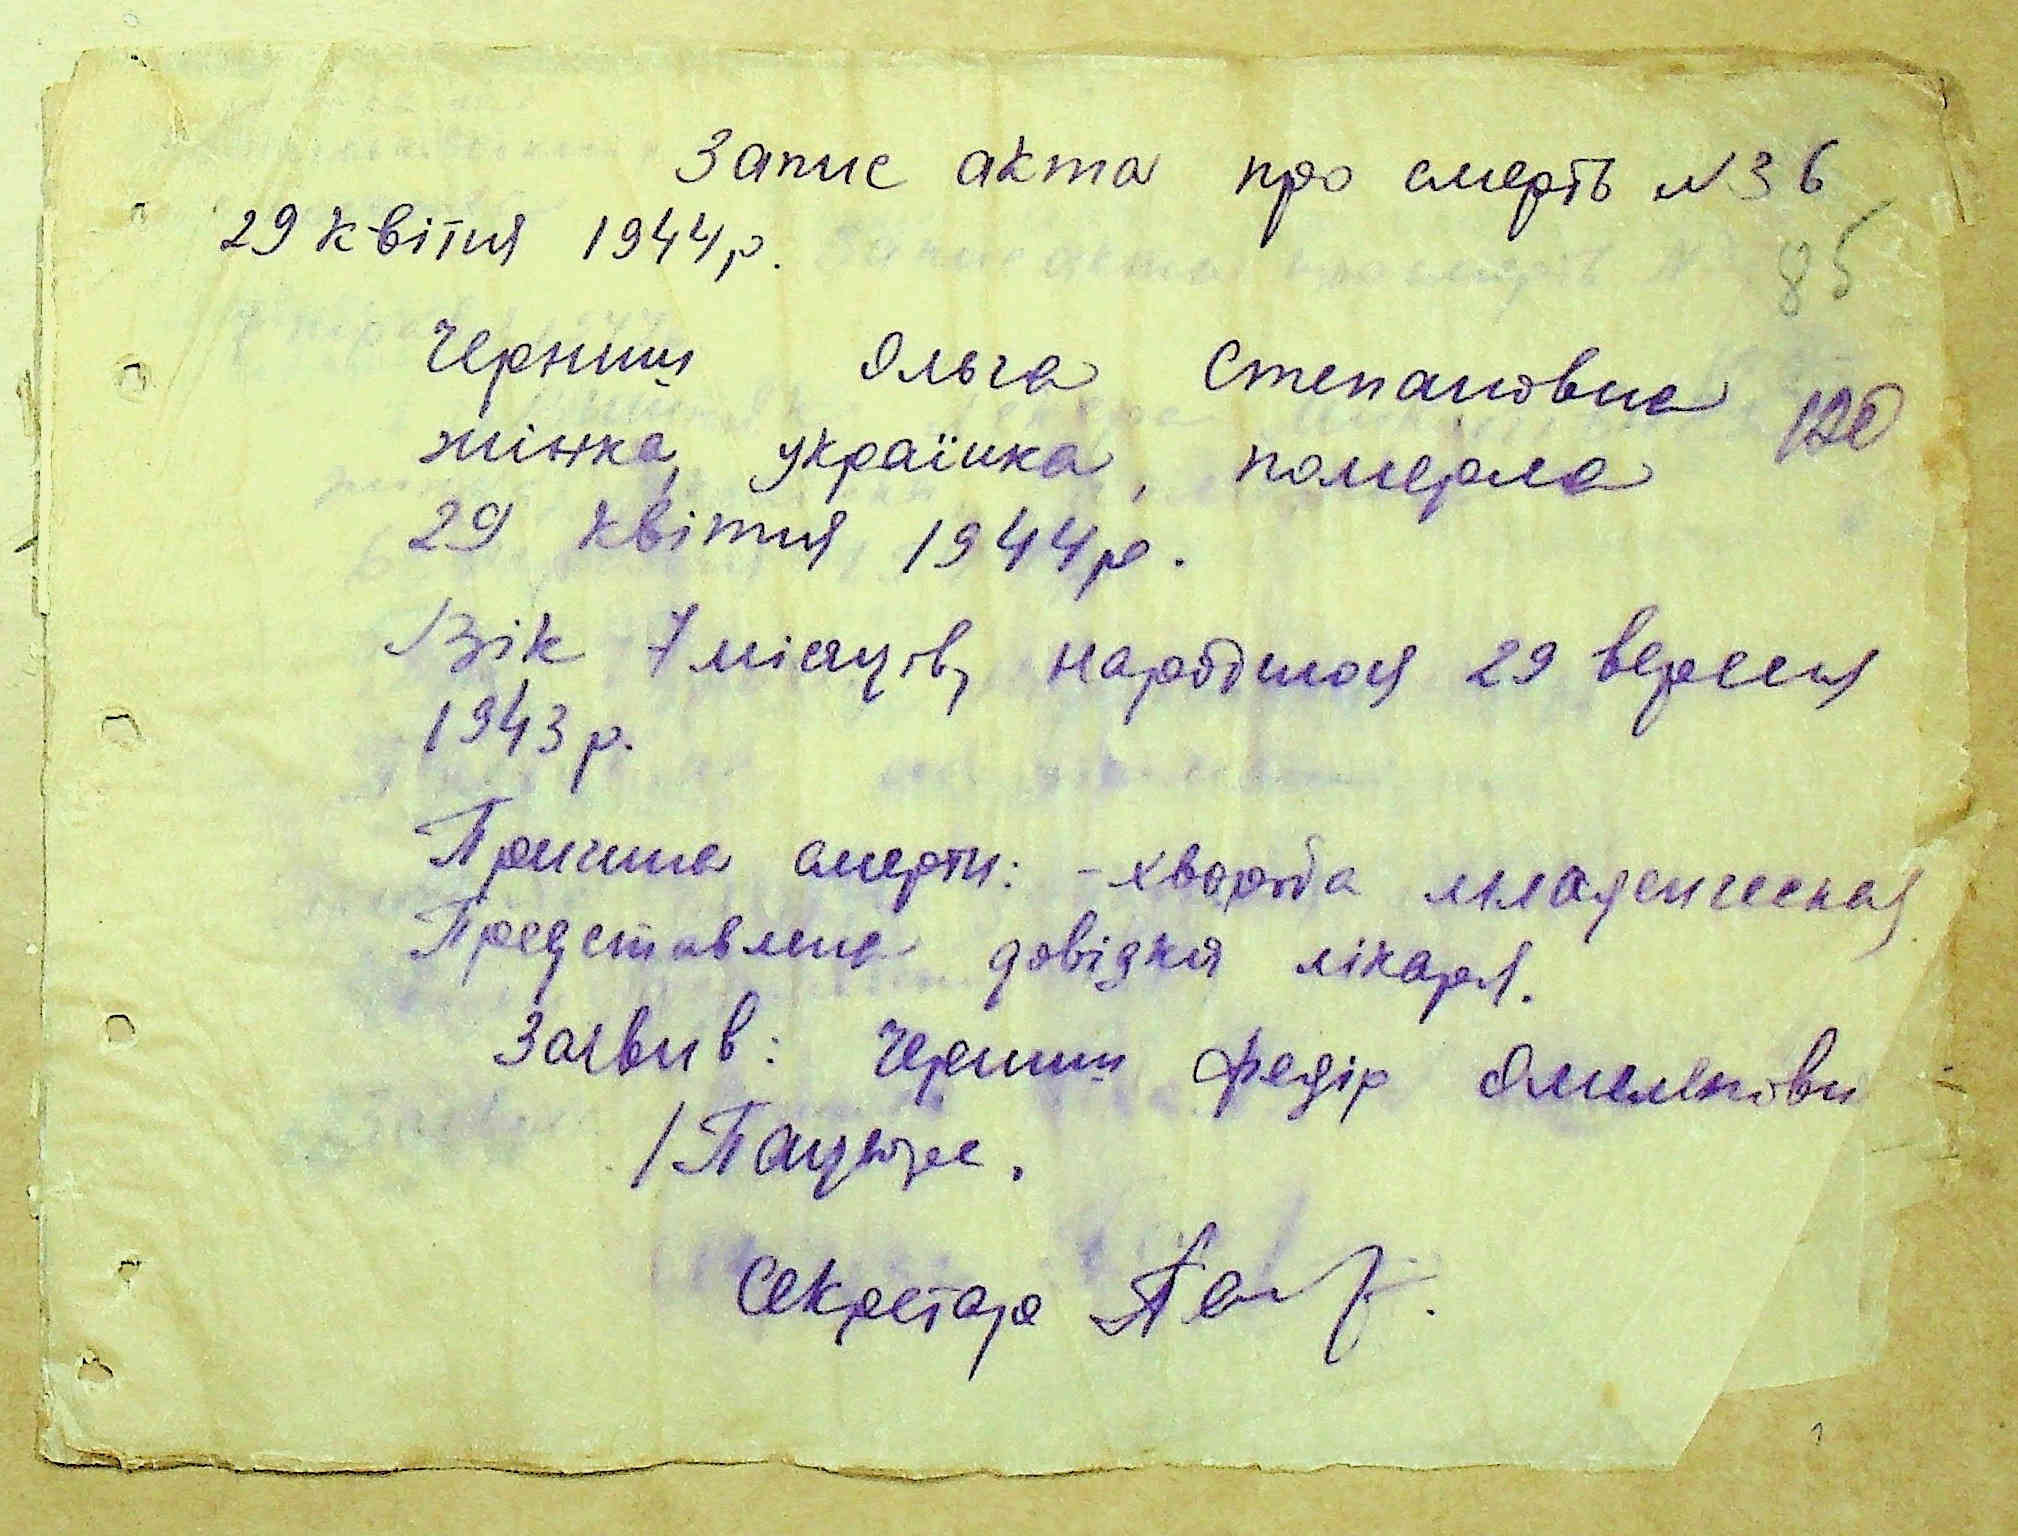 Запис акта про смерть №36
29 квітня 1944р.
85
Черниш Ольга Степановна
120
жінка, українка, померла
29 квітня 1944р.
Вік 7 місяців, народилося 29 вересня
1943р.
Причина смерти: - хвороба младенческая
Представлена довідка лікаря.
Заявив: Черниш Федір Омелянови
Секретар